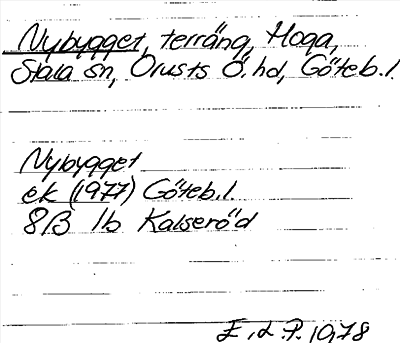 Nybygget, terräng, Hoga,
Stala sn, Orusts Ö. hd, Göteb.l.
Nybygget
ek (1977) Göteb.l.
8B 1b Kalseröd
E.d.P. 1978